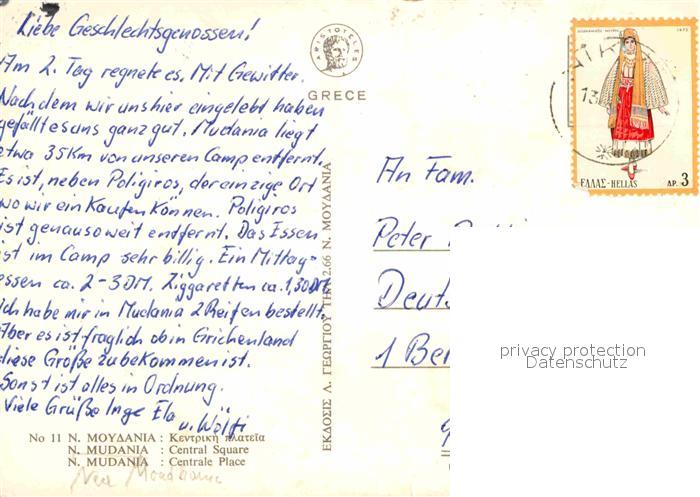 Liebe Geschlechtsgenossen!
Am 2. Tag regnete es. Mit Gewitter.
Nachdem wir uns hier eingelebt haben
gefällt es uns ganz gut. Mudania liegt
etwa 35 Km von unseren Camp entfernt.
Es ist, neben Poligiros, der einzige Ort
wo wir ein Kaufen Können. Poligiros
ist genauso weit entfernt. Das Essen
ist im Camp sehr billig. Ein Mittag-
essen ca. 2-3 DM. Ziggaretten ca. 1,30 DM
ich habe mir in Mudania 2 Reifen bestellt.
Aber es ist fraglich ob in Grichenland
diese Größe zu bekommen ist.
Sonst ist alles in Ordnung.
Viele Grüße Inge Ela
u. Wölfi
No 11 Ν. ΜΟΥΔΑΝΙΑ : Κεντρική πλατεῖα
N. MUDANIA : Central Square
N. MUDANIA : Centrale Place
Nea Moudania
ARISTOTELES
GRECE
ΕΚΔΟΣΙΣ Λ. ΓΕΩΡΓΙΟΥ ΤΗΛ. 2.66 Ν. ΜΟΥΔΑΝΙΑ
1972
ΕΛΛΑΣ-HELLAS
ΔΡ. 3
13
An Fam.
Peter
Deut
1 Ber
privacy protection
Datenschutz